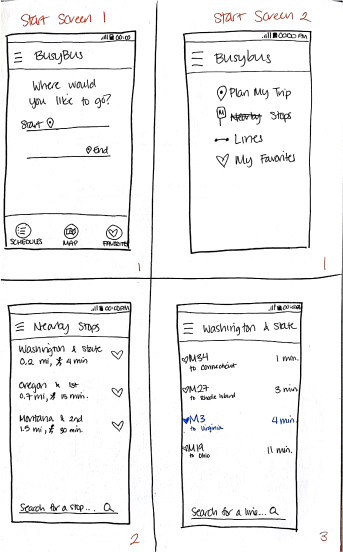 Start Screen 1
00:00
BusyBus
Where would
you like to go?
Start
End
SCHEDULES
MAP
FAVORITES
1
Start Screen 2
00:00 PM
Busybus
Plan My Trip
M Nearby Stops
Lines
My Favorites
1
00:00 PM
Nearby Stops
Washington & State
0.2 mi, 4 min
Oregon & 1st
0.7 mi, 15 min.
Montana & 2nd
1.5 mi, 30 min.
Search for a stop...
2
Washington & State
M34 1 min.
to Connecticut
M27 3 min
to Rhode Island
M3 4 min.
to Virginia
M19 11 min.
to Ohio
Search for a line...
3